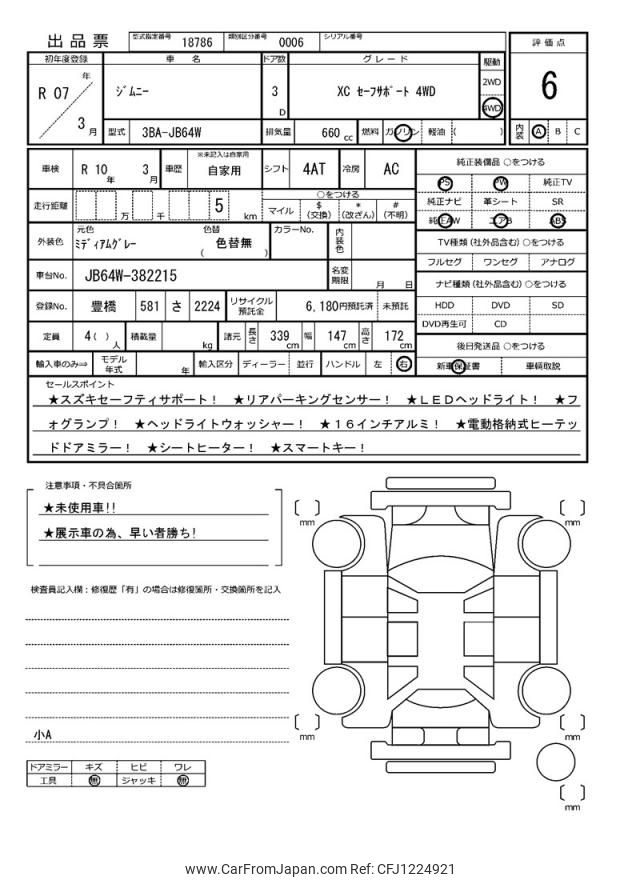 出品票 型式指定番号 18786 類別区分番号 0006 シリアル番号
評価点
6
内装 A B C
初年度登録 車名 ドア数 グレード 駆動
R 07 年 3 月
ジムニー 3 D XC セーフサポート 4WD
2WD
4WD
型式 3BA-JB64W 排気量 660 cc 燃料 ガソリン 軽油 ( )
車検 R 10 年 3 月 車歴 ※未記入は自家用 自家用 シフト 4AT 冷房 AC
走行距離 万 千 5 km
○をつける
マイル $(交換) *(改ざん) #(不明)
外装色 元色 ミディアムグレー 色替 ( 色替無 ) カラーNo. 内装色
車台No. JB64W-382215 名変期限 月 日
登録No. 豊橋 581 さ 2224 リサイクル預託金 6,180円預託済 未預託
定員 4( ) 人 積載量 kg 諸元 長さ 339 cm 幅 147 cm 高さ 172 cm
輸入車のみ⇒ モデル年式 年 輸入区分 ディーラー 並行 ハンドル 左 右
純正装備品 ○をつける
PS PW 純正TV
純正ナビ 革シート SR
純正AW エアB ABS
TV種類 (社外品含む) ○をつける
フルセグ ワンセグ アナログ
ナビ種類 (社外品含む) ○をつける
HDD DVD SD
DVD再生可 CD
後日発送品 ○をつける
新車保証書 車輌取説
セールスポイント
★スズキセーフティサポート! ★リアパーキングセンサー! ★LEDヘッドライト! ★フ
ォグランプ! ★ヘッドライトウォッシャー! ★16インチアルミ! ★電動格納式ヒーテッ
ドドアミラー! ★シートヒーター! ★スマートキー!
注意事項・不具合箇所
★未使用車!!
★展示車の為、早い者勝ち!
検査員記入欄:修復歴「有」の場合は修復箇所・交換箇所を記入
小A
ドアミラー キズ ヒビ ワレ
工具 無 ジャッキ 無
mm
mm
mm
mm
mm
www.CarFromJapan.com Ref: CFJ1224921